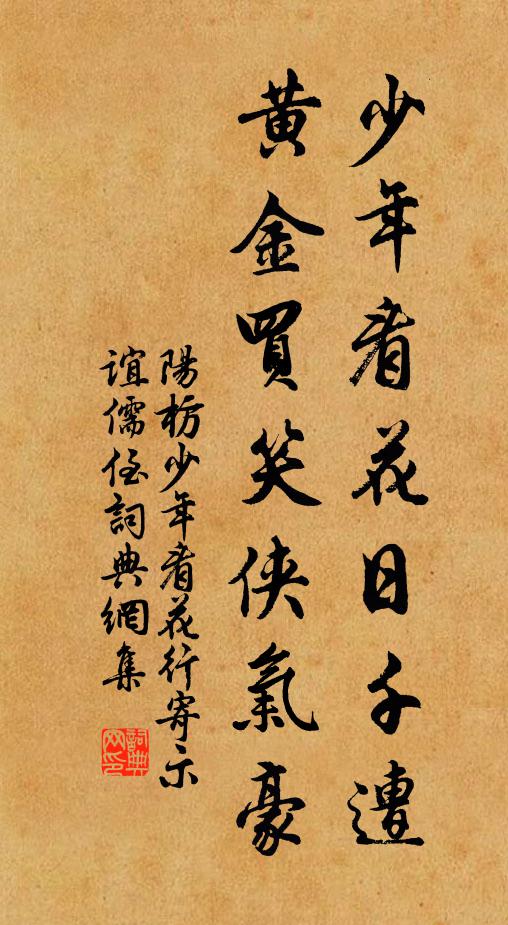 少年看花日千遭
黃金買笑俠氣豪
陽枋少年看花行寄示
誼儒侄詞典網集
詞典網印